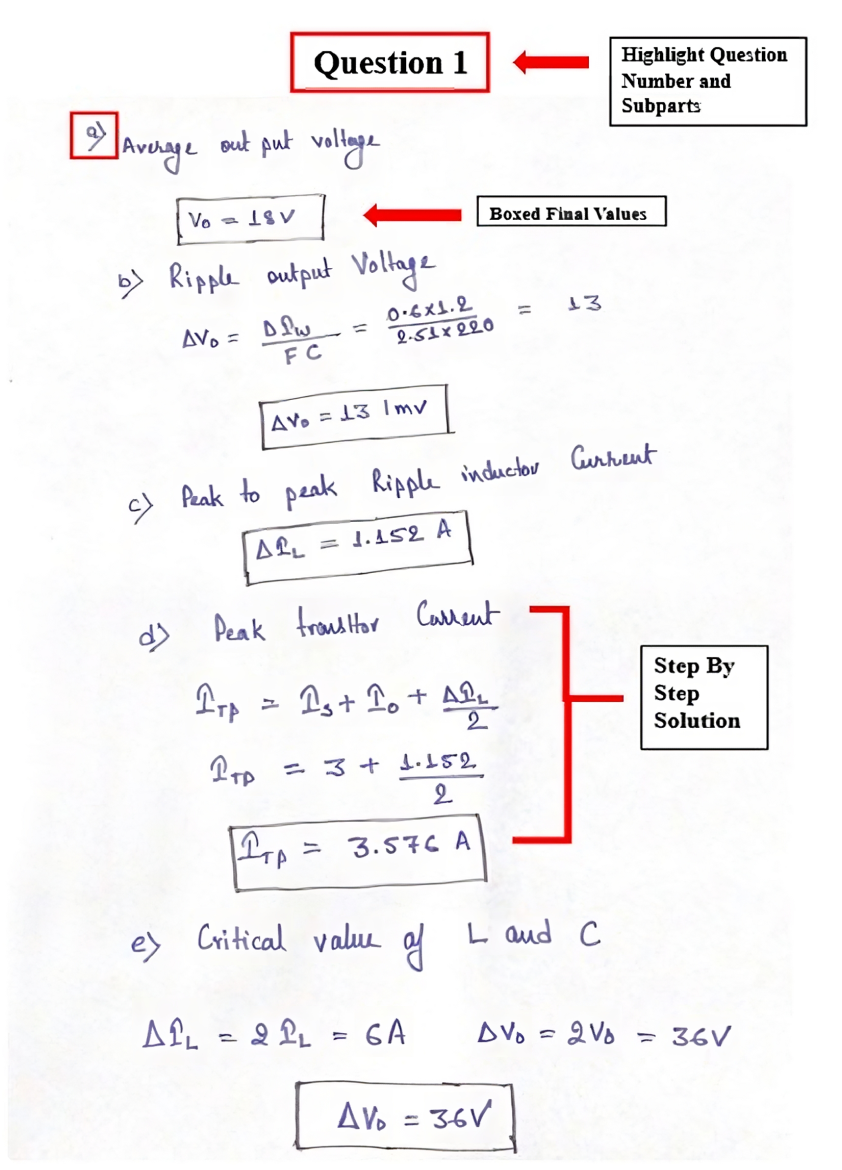 Question 1
Highlight Question
Number and
Subparts
a) Average out put voltage
V₀ = 18V
Boxed Final Values
b) Ripple output Voltage
ΔV₀ = D I_W / F C = 0.6×1.2 / 2.51×220 = 13
ΔV₀ = 13 1mv
c) Peak to peak Ripple inductor Current
ΔI_L = 1.152 A
d) Peak transitor Current
I_TP = I_s + I_o + ΔI_L / 2
I_TP = 3 + 1.152 / 2
I_TP = 3.576 A
Step By
Step
Solution
e) Critical value of L and C
ΔI_L = 2 I_L = 6A ΔV₀ = 2V₀ = 36V
ΔV₀ = 36V